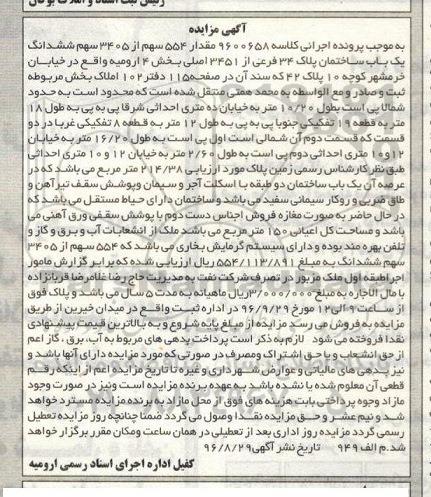 رئیس ثبت اسناد و املاک بوکان
آگهی مزایده
به موجب پرونده اجرائی کلاسه ۹۶۰۰۶۵۸ مقدار ۵۵۴ سهم از ۳۴۰۵ سهم ششدانگ
یک باب ساختمان پلاک ۳۴ فرعی از ۳۴۵۱ اصلی بخش ۴ ارومیه واقع در خیابان
خرمشهر کوچه ۱۰ پلاک ۴۲ که سند آن در صفحه ۱۱۵ دفتر ۱۰۲ املاک بخش مربوطه
ثبت و صادر و مع الواسطه به محمد همتی منتقل شده است که محدود است به حدود
شمالا پی است بطول ۱۰/۲۰ متر به خیابان ده متری احداثی شرقا پی به پی به طول ۱۸
متر به قطعه ۱۹ تفکیکی جنوبا پی به پی به طول ۱۲ متر به قطعه ۸ تفکیکی غربا در دو
قسمت که قسمت دوم آن شمالی است اول پی است به طول ۱۶/۲۰ متر به خیابان
۱۲ و ۱۰ متری احداثی دوم پی است به طول ۲/۶۰ متر به خیابان ۱۲ و ۱۰ متری احداثی
طبق نظر کارشناس رسمی زمین پلاک مورد ارزیابی ۲۱۴/۳۸ متر مربع می باشد که در
عرصه آن یک باب ساختمان دو طبقه با اسکلت آجر و سیمان وپوشش سقف تیرآهن و
طاق ضربی و روکار سیمانی سفید می باشد و ساختمان دارای حیاط مستقل می باشد که
در حال حاضر به صورت مغازه فروش اجناس دست دوم با پوشش سقفی ورق آهنی می
باشد و مساحت کل اعیانی ۱۵۰ متر مربع می باشد ملک از انشعابات آب و برق و گاز و
تلفن بهره مند بوده و دارای سیستم گرمایش بخاری می باشد که ۵۵۴ سهم از ۳۴۰۵
سهم ششدانگ به مبلغ ۵۵۴/۱۱۳/۸۹۱ ریال ارزیابی شده که برابر گزارش مامور
اجرا طبقه اول ملک مزبور در تصرف شرکت نفت به مدیریت حاج رضا غلامرضا قربانزاده
با مال الاجاره به مبلغ ۳/۰۰۰/۰۰۰ ریال ماهیانه به مدت ۵ سال می باشد و پلاک فوق
از ساعت ۹ الی ۱۲ مورخ ۹۶/۹/۲۹ در اداره ثبت واقع در میدان خیرین از طریق
مزایده به فروش می رسد مزایده از مبلغ پایه شروع و به بالاترین قیمت پیشنهادی
نقدا فروخته می شود لازم به ذکر است پرداخت بدهی های مربوط به آب، برق، گاز اعم
از حق انشعاب و یا حق اشتراک ومصرف در صورتی که مورد مزایده دارای آنها باشد و
نیز بدهی های مالیاتی و عوارض شهرداری و غیره تا تاریخ مزایده اعم از اینکه رقم
قطعی آن معلوم شده یا نشده باشد به عهده برنده مزایده است ونیز در صورت وجود
مازاد وجوه پرداختی بابت هزینه های فوق از محل مازاد به برنده مزایده مسترد خواهد
شد و نیم عشر و حق مزایده نقدا وصول می گردد ضمنا چنانچه روز مزایده تعطیل
رسمی گردد مزایده روز اداری بعد از تعطیلی در همان ساعت ومکان مقرر برگزار خواهد
شد.م الف ۹۴۹ تاریخ نشر آگهی ۹۶/۸/۲۹
کفیل اداره اجرای اسناد رسمی ارومیه